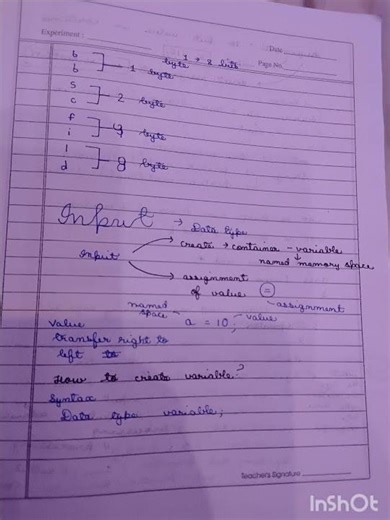 Experiment :
Date
Page No.
1 + 8 bits
byte
b
b
1 byte
S
C
2 byte
f
i
4 byte
l
d
8 byte
Input → Data type
Input
create → container - variable
named memory space
assignment
of value =
assignment
named
space
a = 10; value
Value
transfer right to
left to
How to create variable?
Syntax
Data type variable;
Teacher's Signature
InShOt